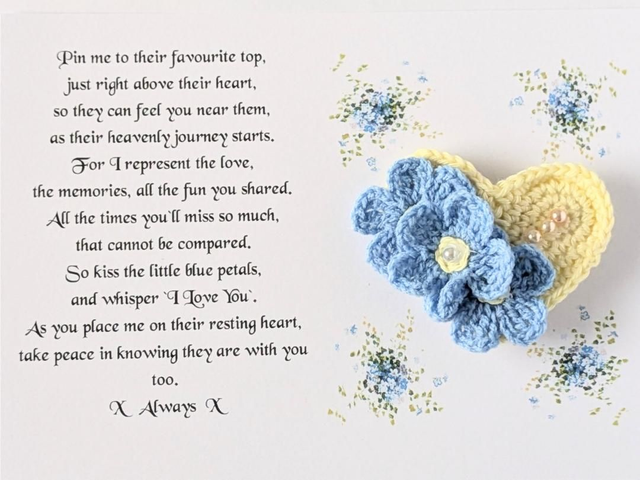 Pin me to their favourite top,
just right above their heart,
so they can feel you near them,
as their heavenly journey starts.
For I represent the love,
the memories, all the fun you shared.
All the times you`ll miss so much,
that cannot be compared.
So kiss the little blue petals,
and whisper `I Love You`.
As you place me on their resting heart,
take peace in knowing they are with you
too.
X Always X